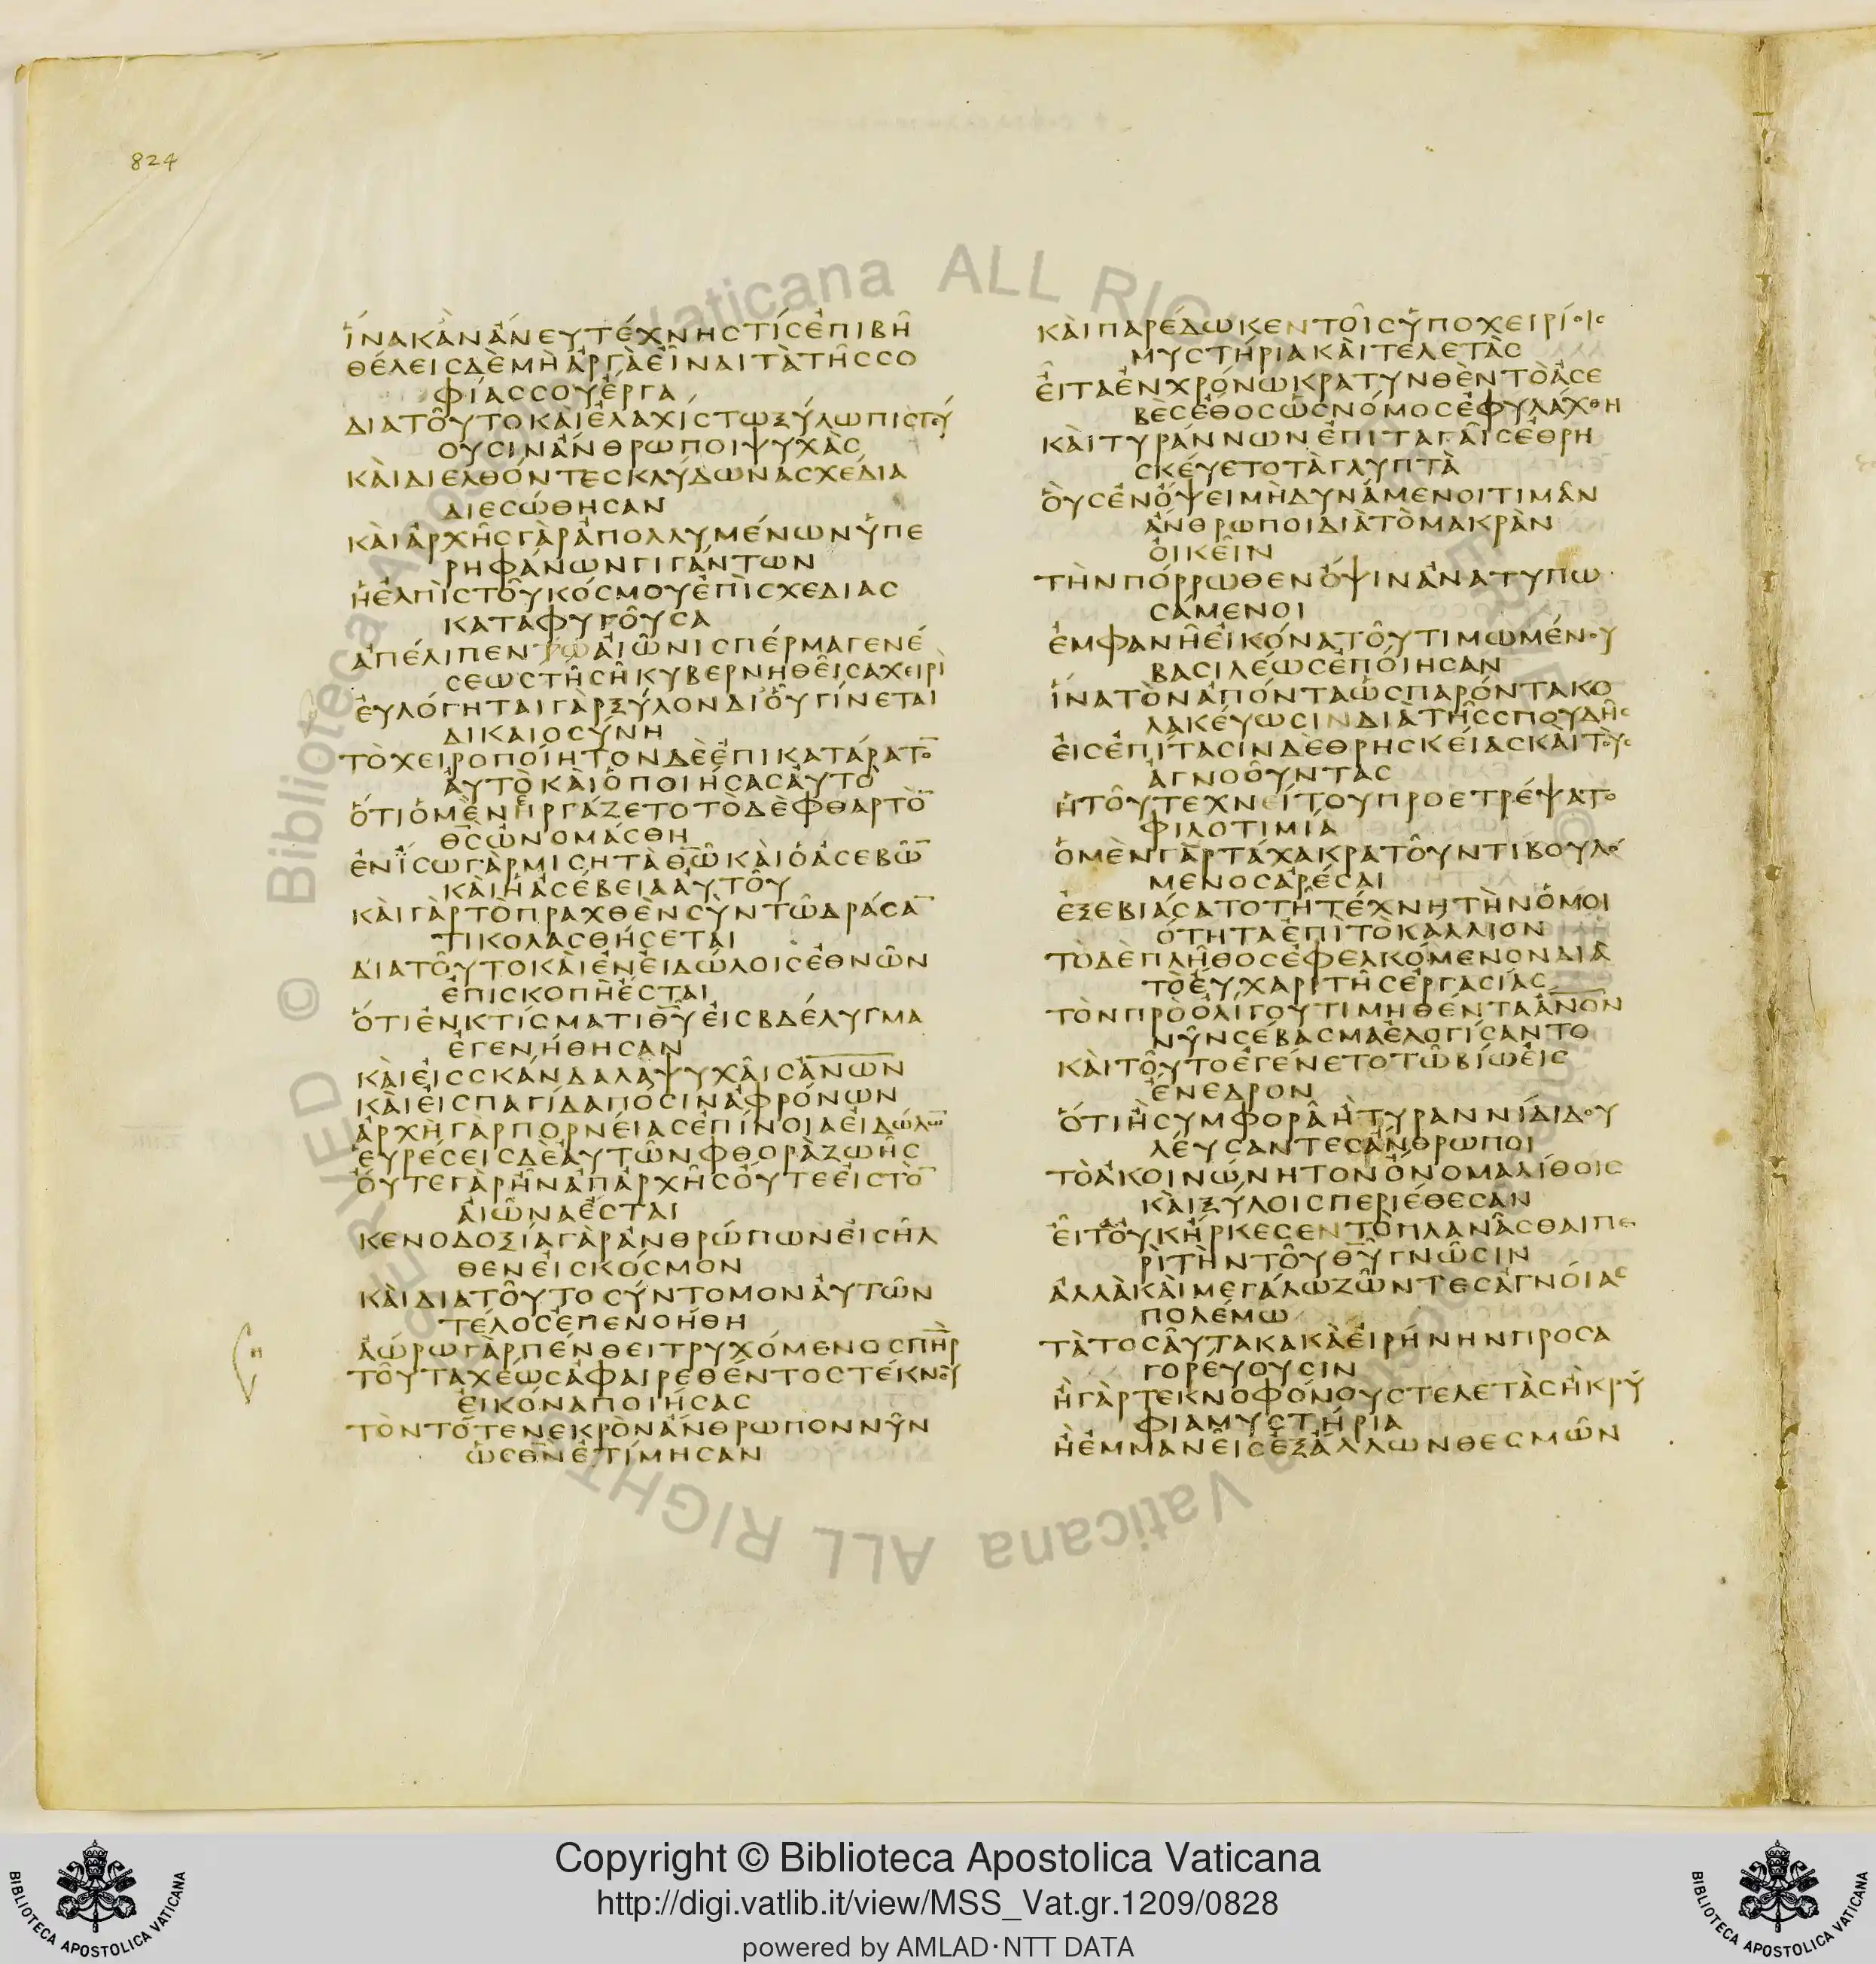 824
ἵνακἂνἄνευτέχνηςτίςἐπιβῆ
θέλειςδὲμὴἀργὰεἶναιτὰτῆςσο
φίαςσουἔργα
διατοῦτοκαὶἐλαχίστωξύλωπιστεύ
ουσινἄνθρωποιψυχὰς
καὶδιελθόντεςκλύδωνασχεδία
διεσώθησαν
καὶἀρχῆςγὰρἀπολλυμένωνὑπε
ρηφάνωνγιγάντων
ἡἐλπὶςτοῦκόσμουἐπὶσχεδίας
καταφυγοῦσα
ἀπέλιπεντῶαἰῶνισπέρμαγενέ
σεωςτῆσῆκυβερνηθεῖσαχειρὶ
εὐλόγηταιγὰρξύλονδιοὗγίνεται
δικαιοσύνη
τὸχειροποίητονδὲἐπικατάρατο̅
αὐτὸκαὶὁποιήσαςαὐτό
ὅτιὁμὲνἠργάζετοτὸδὲφθαρτὸ̅
θ̅ς̅ὠνομάσθη
ἐνἴσωγὰρμισητὰθ̅ῶ̅καὶὁἀσεβῶ̅
καὶἡἀσέβειααὐτοῦ
καὶγὰρτὸπραχθὲνσὺντῶδράσα̅
τικολασθήσεται
διατοῦτοκαὶἐνεἰδώλοιςἐθνῶν
ἐπισκοπὴἔσται
ὅτιἐνκτίσματιθ̅ῦ̅εἰςβδέλυγμα
ἐγενήθησαν
καὶεἰςσκάνδαλαψυχαῖςἀ̅ν̅ω̅ν̅
καὶεἰςπαγίδαποσὶνἀφρόνων
ἀρχὴγὰρπορνείαςἐπίνοιαεἰδώλω̅
εὑρέσειςδὲαὐτῶνφθορὰζωῆς
οὔτεγὰρἦνἀπἀρχῆςοὔτεεἰςτὸ̅
αἰῶναἔσται
κενοδοξίαγὰρἀνθρώπωνεἰσῆλ
θενεἰςκόσμον
καὶδιατοῦτοσύντομοναὐτῶν
τέλοςἐπενοήθη
ἀώρωγὰρπένθειτρυχόμενοςπ̅ὴ̅ρ̅
τοῦταχέωςἀφαιρεθέντοςτέκνου
εἰκόναποιήσας
τὸντότενεκρὸνἄνθρωποννῦν
ὡςθ̅ν̅ἐτίμησαν
καὶπαρέδωκεντοῖςὑποχειρίοις
μυστήριακαὶτελετὰς
εἶταἐνχρόνωκρατυνθὲντὸἀσε
βὲςἔθοςὡςνόμοςἐφυλάχθη
καὶτυράννωνἐπιταγαῖςἐθρη
σκεύετοτὰγλυπτὰ
οὓςἐνὄψειμὴδυνάμενοιτιμᾶν
ἄνθρωποιδιὰτὸμακρὰν
οἰκεῖν
τὴνπόρρωθενὄψινἀνατυπω
σάμενοι
ἐμφανῆεἰκόνατοῦτιμωμένου
βασιλέωςἐποίησαν
ἵνατὸνἀπόνταὡςπαρόντακο
λακεύωσινδιὰτῆςσπουδῆς
εἰςἐπίτασινδὲθρησκείαςκαὶτοὺς
ἀγνοοῦντας
ἡτοῦτεχνείτουπροετρέψατο
φιλοτιμία
ὁμὲνγὰρτάχακρατοῦντιβουλό
μενοςἀρέσαι
ἐξεβιάσατοτῆτέχνητὴνὁμοι
ότηταἐπὶτὸκάλλιον
τὸδὲπλῆθοςἐφελκόμενονδιὰ
τὸεὔχαριτῆςἐργασίας
τὸνπρὸὀλίγουτιμηθέντα̅ἄ̅ν̅ο̅ν̅
νῦνσέβασμαἐλογίσαντο
καὶτοῦτοἐγένετοτῶβίωεἰς
ἔνεδρον
ὅτιἢσυμφορᾶἢτυραννίδιδου
λεύσαντεςἄνθρωποι
τὸἀκοινώνητονὄνομαλίθοις
καὶξύλοιςπεριέθεσαν
εἶτοὐκἤρκεσεντὸπλανᾶσθαιπε
ρὶτὴντοῦθ̅ῦ̅γνῶσιν
ἀλλὰκαὶμεγάλωζῶντεςἀγνοίας
πολέμω
τὰτοσαῦτακακὰεἰρήνηνπροσα
γορεύουσιν
ἢγὰρτεκνοφόνουςτελετὰςἢκρύ
φιαμυστήρια
ἢἐμμανεῖςἐξάλλωνθεσμῶν
Copyright © Biblioteca Apostolica Vaticana
http://digi.vatlib.it/view/MSS_Vat.gr.1209/0828
powered by AMLAD·NTT DATA
BIBLIOTECA APOSTOLICA VATICANA
BIBLIOTECA APOSTOLICA VATICANA